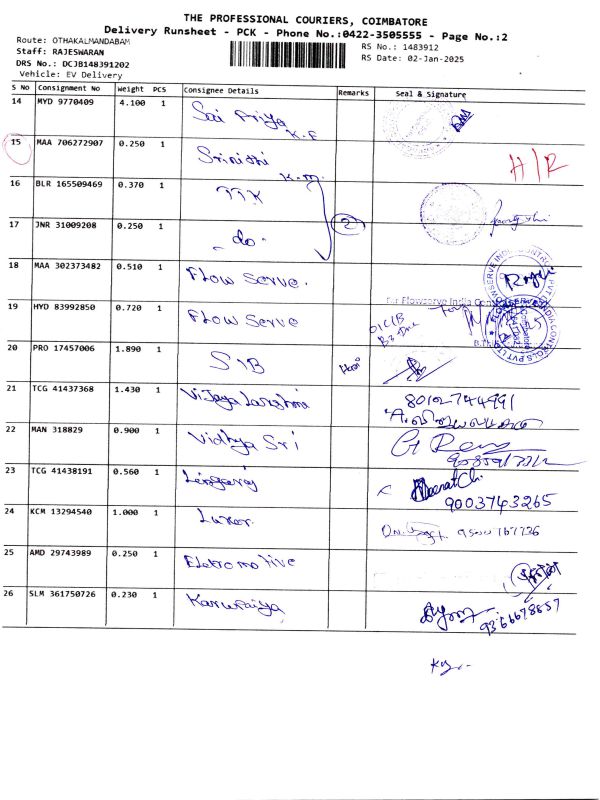 THE PROFESSIONAL COURIERS, COIMBATORE
Delivery Runsheet - PCK - Phone No.:0422-3505555 - Page No.:2
Route: OTHAKALMANDABAM
RS No.: 1483912
Staff: RAJESWARAN
RS Date: 02-Jan-2025
DRS No.: DCJB148391202
Vehicle: EV Delivery
S No Consignment No Weight PCS Consignee Details Remarks Seal & Signature
14 MYD 9770409 4.100 1 Sai Priya
K.F
15 MAA 706272907 0.250 1 Srinidhi H/R
K.M.
16 BLR 165509469 0.370 1 TTK
17 JNR 31009208 0.250 1 - do - 2
18 MAA 302373482 0.510 1 Flow Serve.
For Flowserve India Con
19 HYD 83992850 0.720 1 Flow Serve
20 PRO 17457006 1.890 1 SIB
21 TCG 41437368 1.430 1 Vijaya Lakshmi 8012744991
22 MAN 318829 0.900 1 Vidhya Sri
23 TCG 41438191 0.560 1 Lingaraj
9003743265
24 KCM 13294540 1.000 1 Luker
25 AMD 29743989 0.250 1 Eletromotive
26 SLM 361750726 0.230 1 Karupaiya